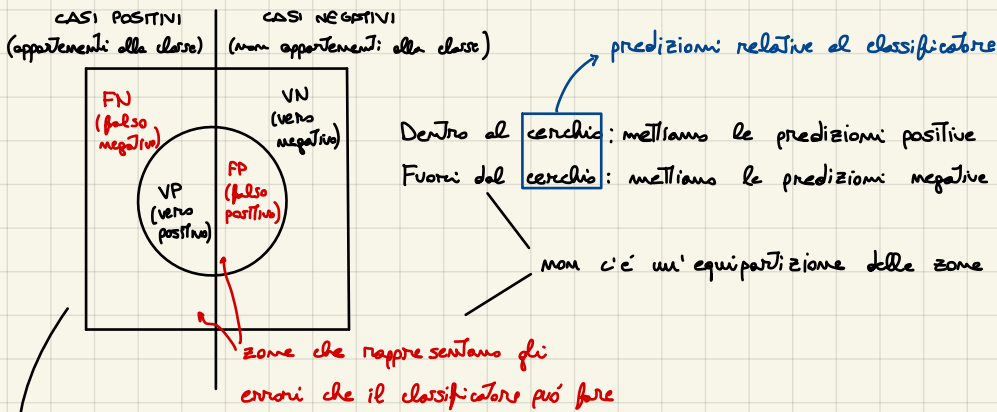 CASI POSITIVI
(appartenenti alla classe)
CASI NEGATIVI
(non appartenenti alla classe)
FN
(falso
negativo)
VN
(vero
negativo)
VP
(vero
positivo)
FP
(falso
positivo)
predizioni relative al classificatore
Dentro al cerchio: mettiamo le predizioni positive
Fuori dal cerchio: mettiamo le predizioni negative
non c'é un'equipartizione delle zone
zone che rappresentano gli
errori che il classificatore puó fare